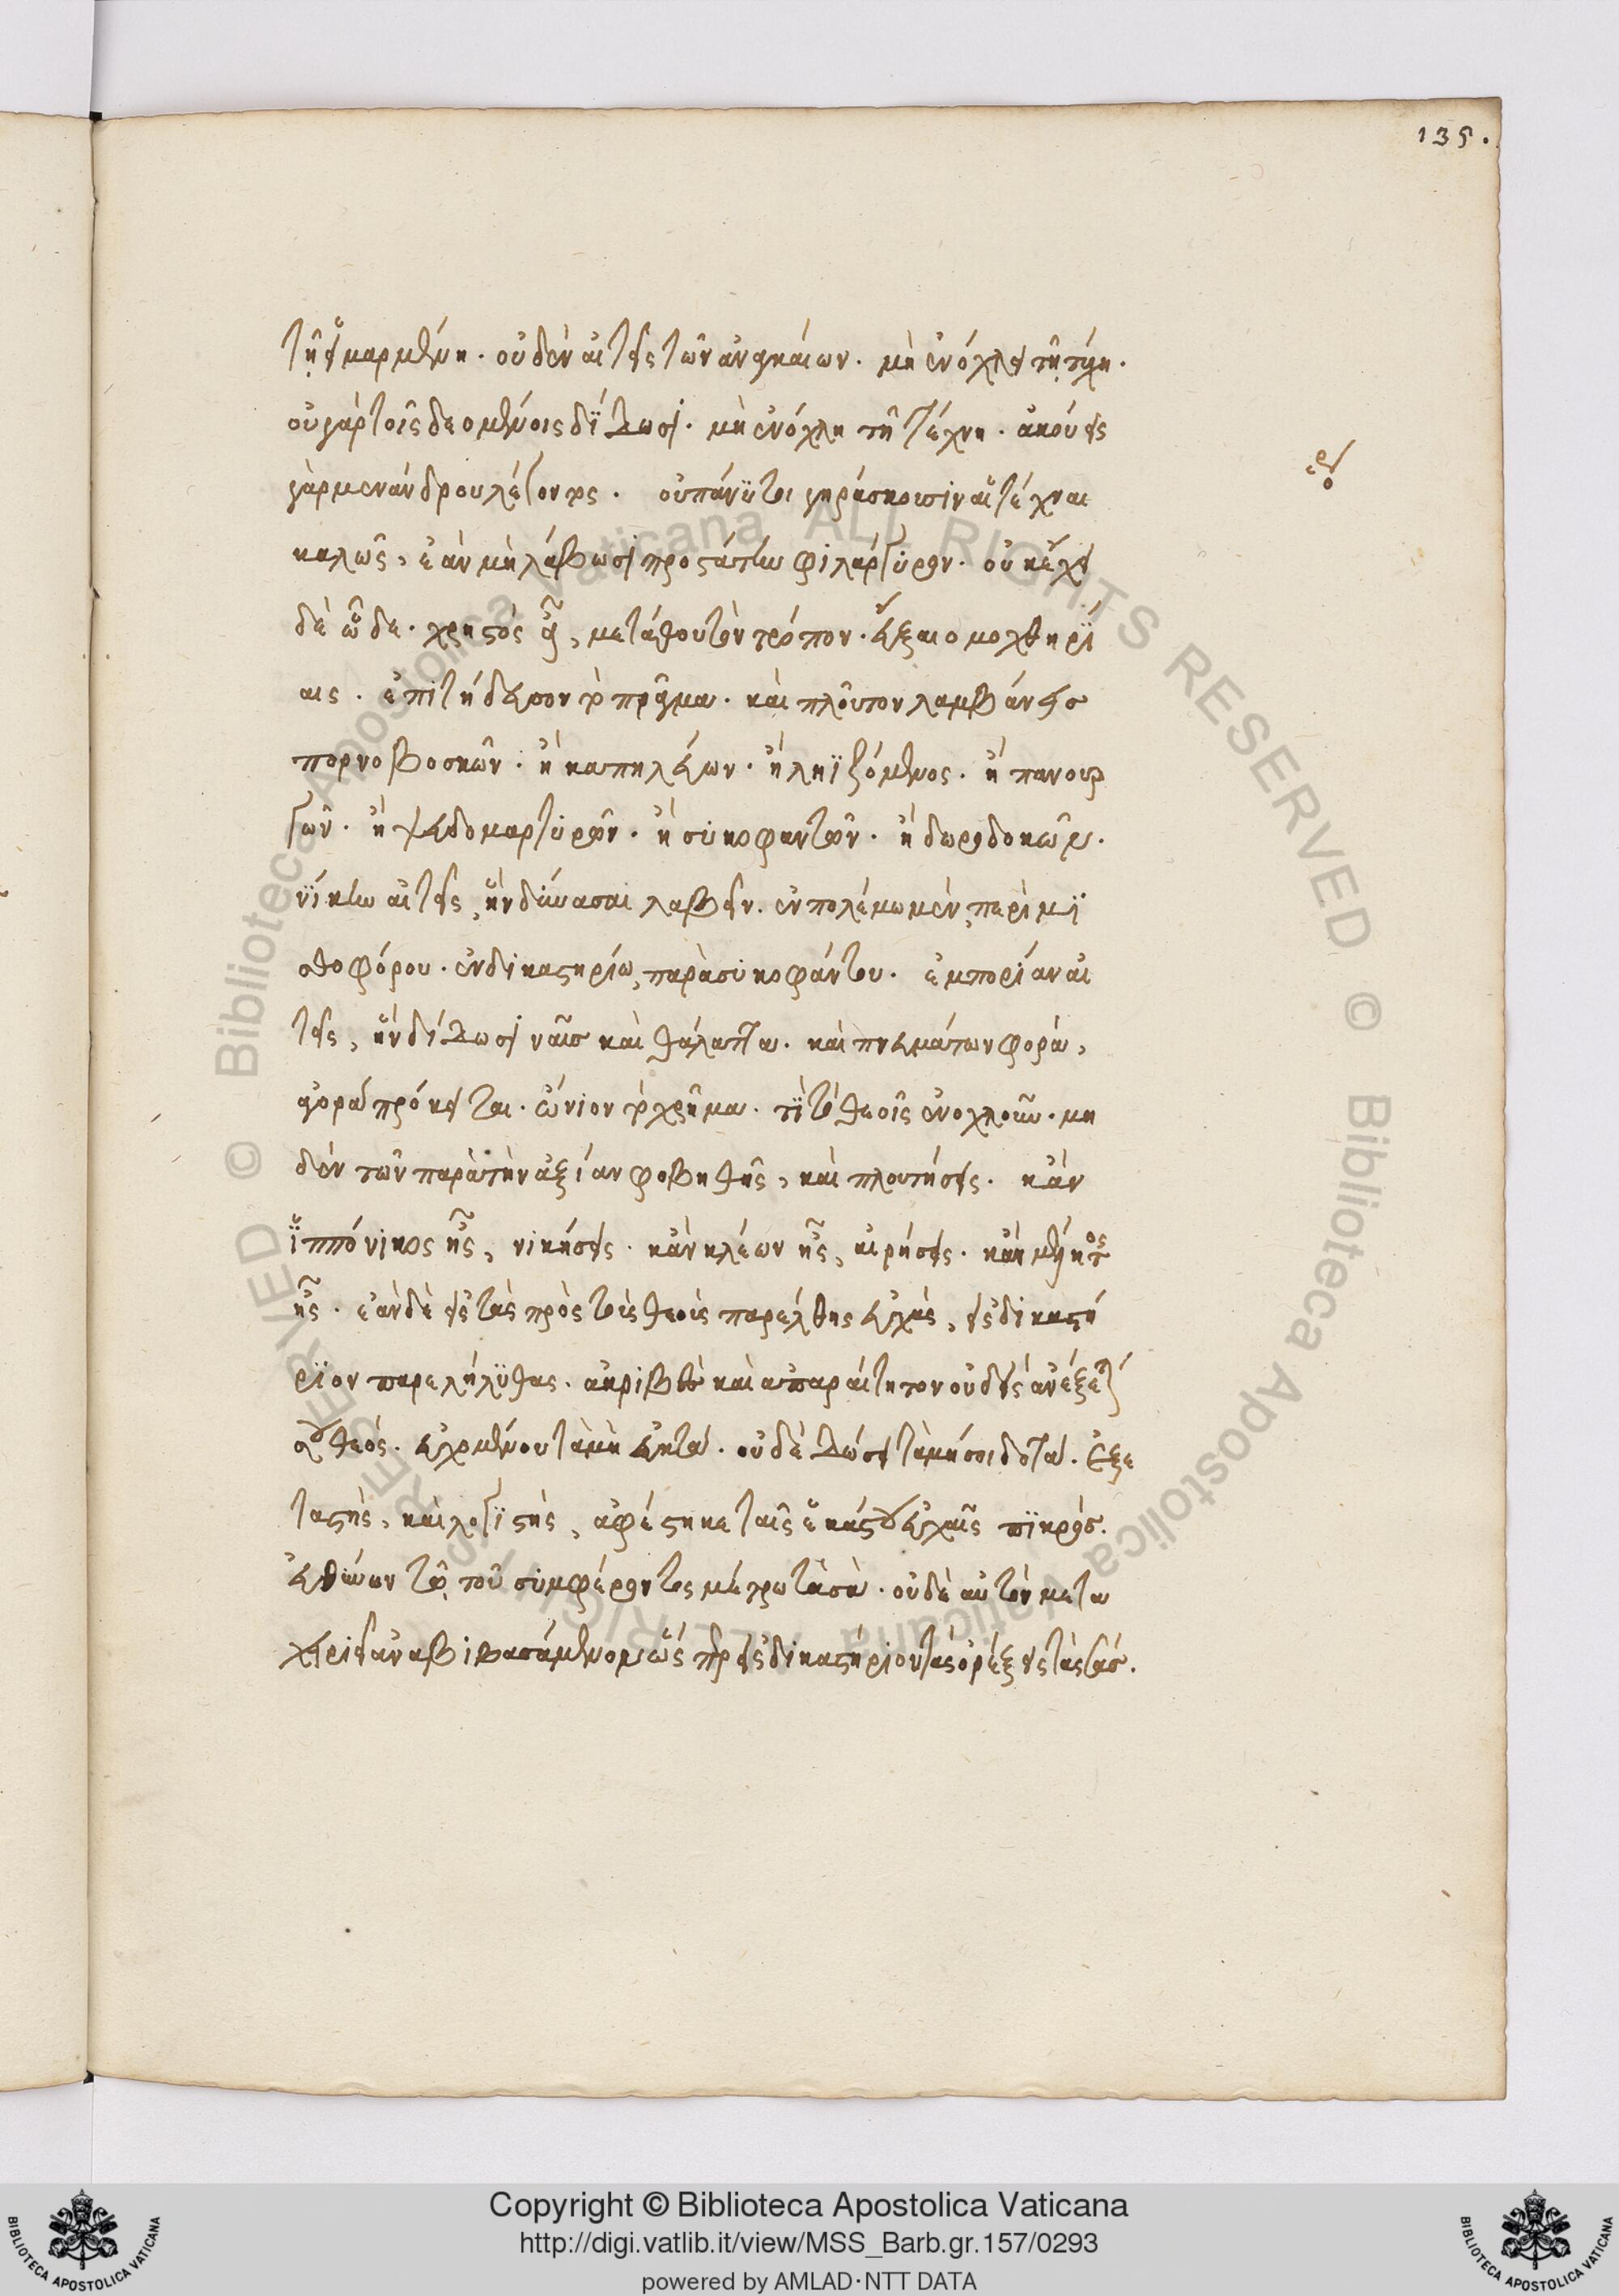 135.
τῇ εἱμαρμένῃ. οὐδὲν αἰτεῖς τῶν ἀναγκαίων. μὴ ἐνόχλει τῇ τύχῃ.
οὐ γὰρ τοῖς δεομένοις δίδωσι. μὴ ἐνόχλη τῇ τέχνῃ. ἀκούεις
γὰρ μενάνδρου λέγοντος. οὐ πάνυ τοι γηράσκουσιν αἱ τέχναι
καλῶς, ἐὰν μὴ λάβωσι προστάτην φιλάργυρον. οὐκ ἔχει
δὲ ὧδε. χρηστὸς εἶ, μετάθου τὸν τρόπον. εὖξαι ο μοχθηρί
αις. ἐπιτήδευσον τὸ πρᾶγμα. καὶ πλοῦτον λαμβάνεις
πορνοβοσκῶν. ἢ καπηλεύων. ἢ ληϊζόμενος. ἢ πανουρ
γῶν. ἢ ψευδομαρτυρῶν. ἢ συκοφαντῶν. ἢ δωροδοκῶν.
νίκην αἰτεῖς, ἣν δύνασαι λαβεῖν. ἐν πολέμω μὲν, περὶ μι
σθοφόρου. ἐν δικαστηρίω, παρὰ συκοφάντου. ἐμπορίαν αἰ
τεῖς, ἣν δίδωσι ναῦς καὶ θάλαττα. καὶ πνευμάτων φορά,
ἀγορὰ πρόκειται. ὤνιον τὸ χρῆμα. τί τοῖς θεοῖς ἐνοχλοῦν. μη
δὲν τῶν παρὰ τὴν ἀξίαν φοβηθῇς, καὶ πλουτήσεις. κἂν
ἱππόνικος ᾖς, νικήσεις. κἂν κλέων ᾖς, αἱρήσεις. κἂν μέλητος
ᾖς. ἐὰν δὲ εἰς τὰς πρὸς τοὺς θεοὺς παρέλθης εὐχὰς, εἰς δικαστή
ριον παρελήλυθας. ἀκριβὲς καὶ ἀπαραίτητον οὐδεὶς ἀνέξεται
ὁ θεός. εὐχομένου τὰ μὴ εὐκτά. οὐδὲ δώσει τὰ μή σοι δοτά. ἐξε
ταστὴς, καὶ λογιστὴς, ἀφέστηκε ταῖς ἑκάστου εὐχαῖς πικρός.
εὐθύνων τῶ τοῦ συμφέροντος μέτρω τὰ σὰ. οὐδὲ αὐτὸν μετα
χειριεῖ ἀναβιβασάμενος ὥσπερ εἰς δικαστήριον τὰς ὀρέξεις τὰς σάς.
Copyright © Biblioteca Apostolica Vaticana
http://digi.vatlib.it/view/MSS_Barb.gr.157/0293
powered by AMLAD·NTT DATA
BIBLIOTECA APOSTOLICA VATICANA
BIBLIOTECA APOSTOLICA VATICANA
© Biblioteca Apostolica Vaticana ALL RIGHTS RESERVED © Biblioteca Apostolica Vaticana ALL RIGHTS RESERVED